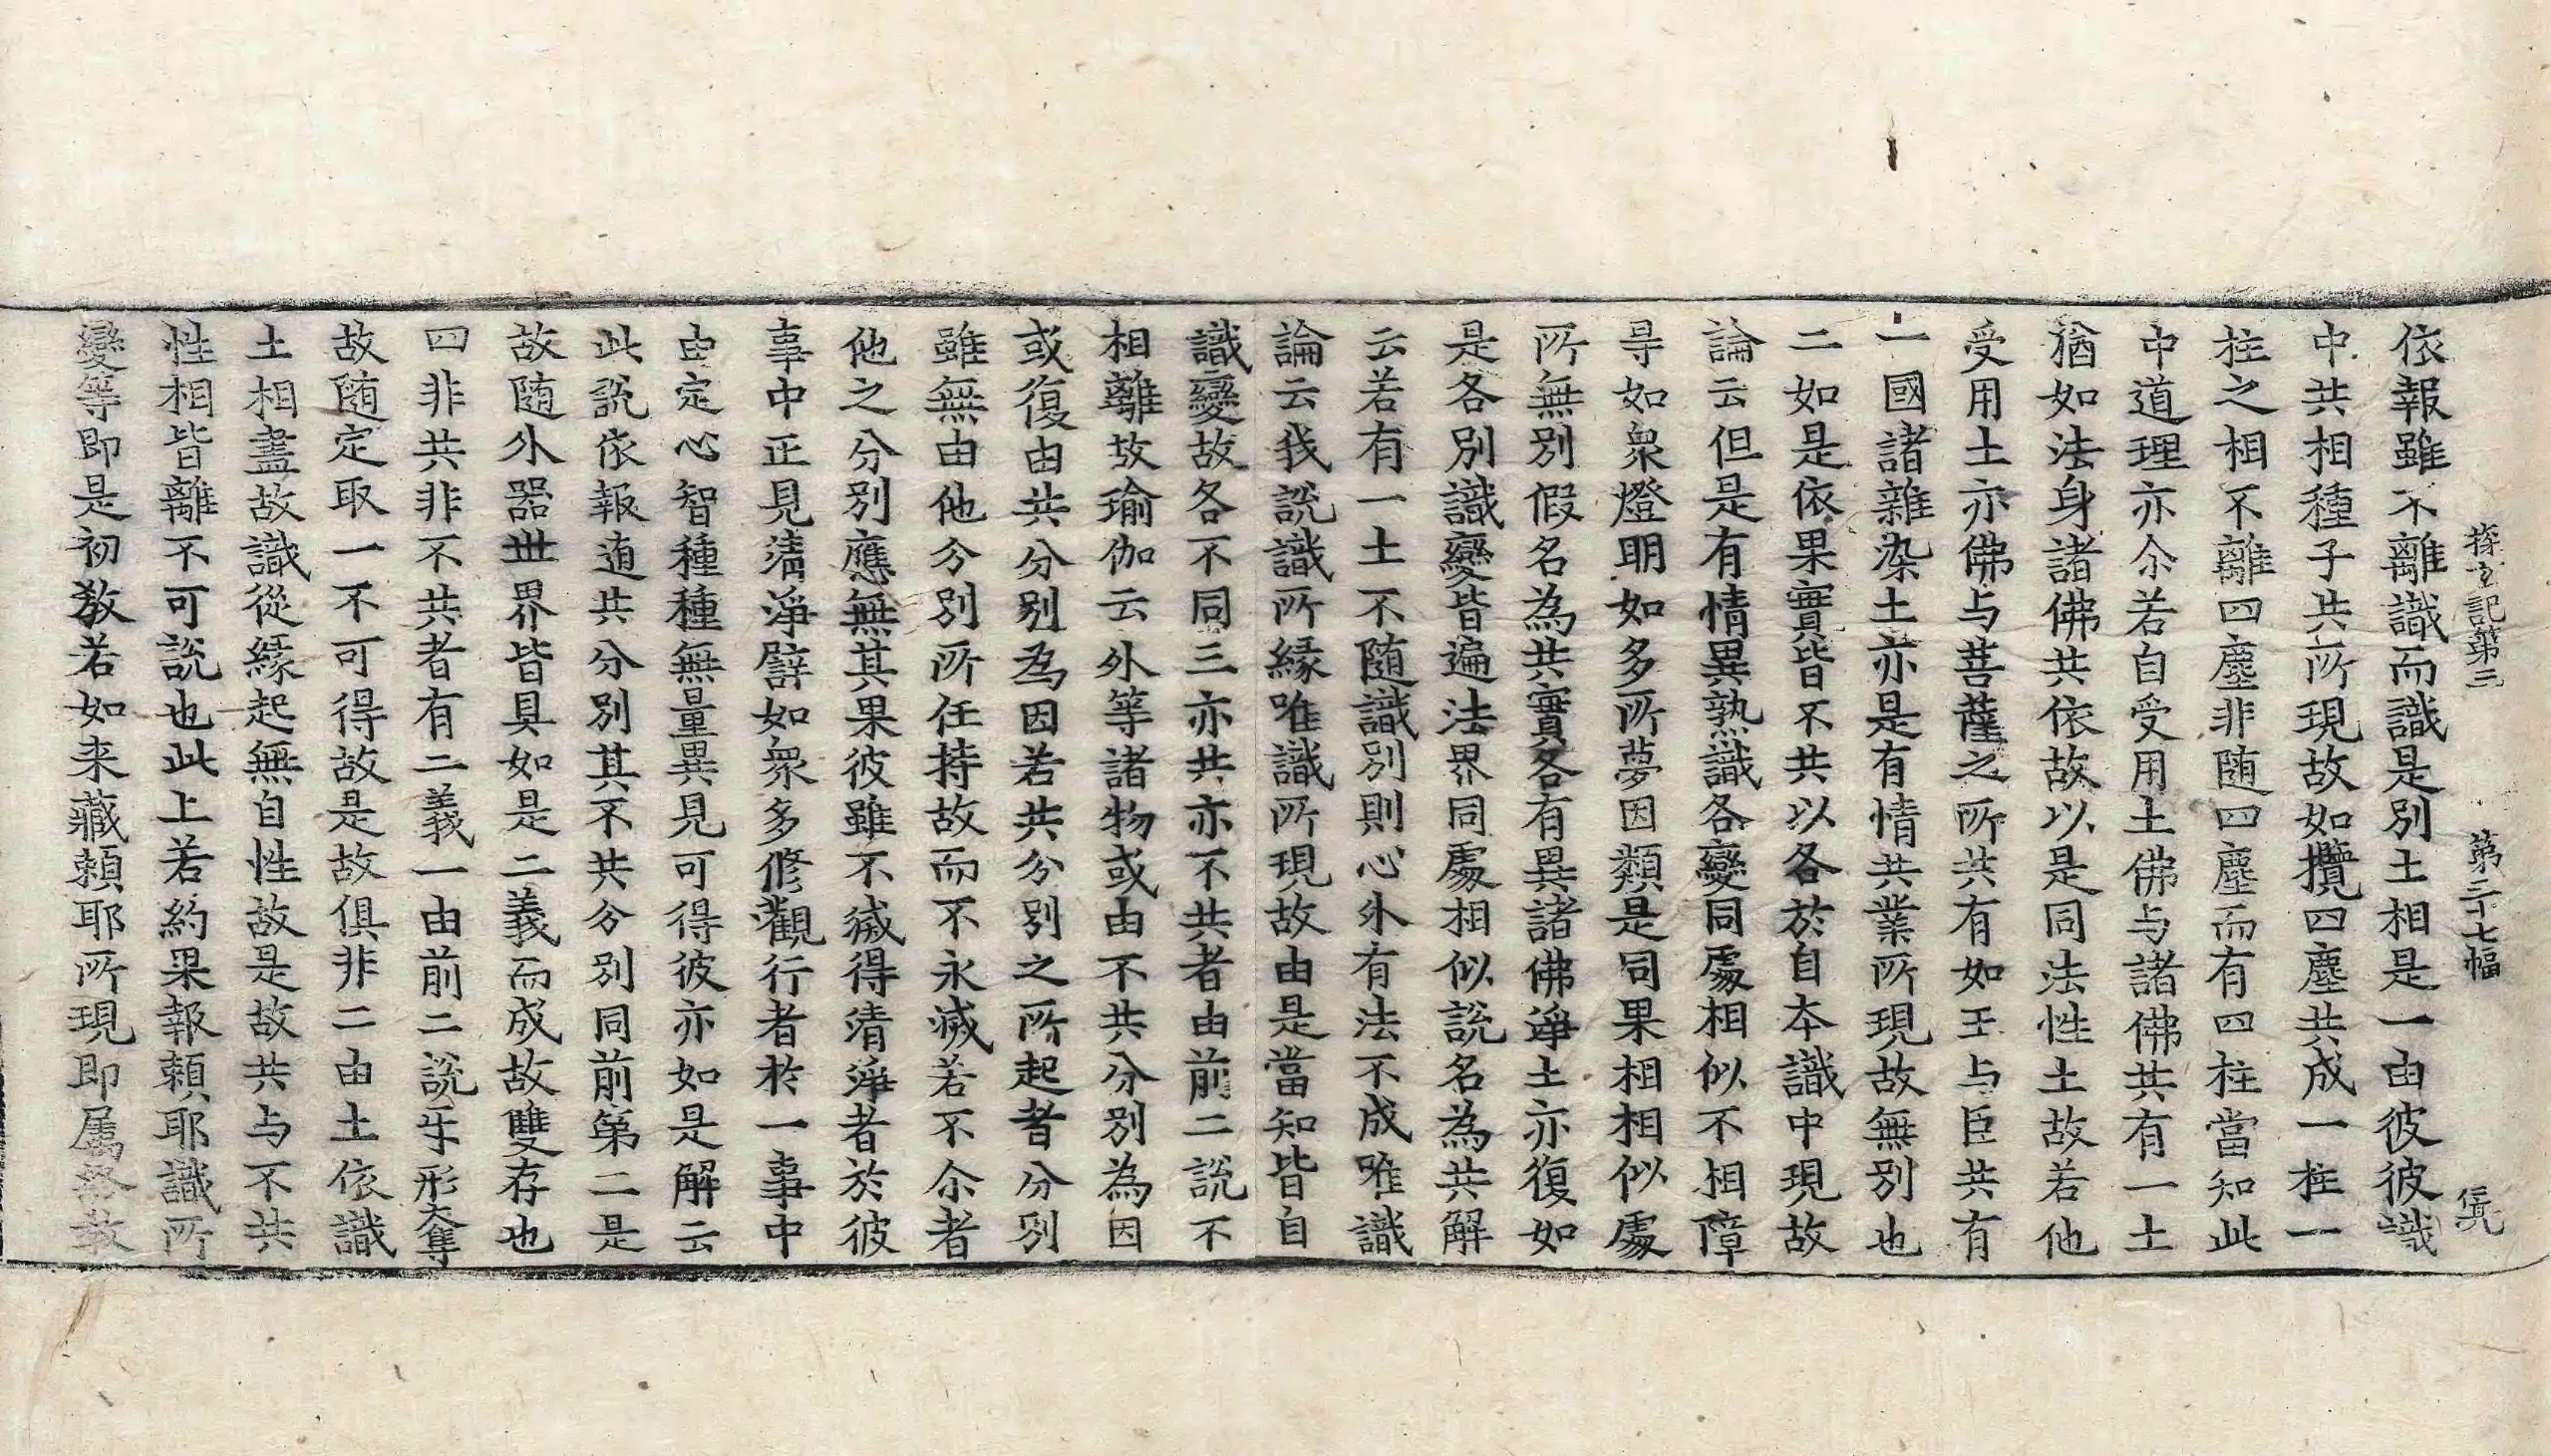 探玄記第三　第三十七幅　㒷
依報雖不離識而識是別土相是一由彼彼識
中共相種子共所現故如攬四塵共成一柱一
柱之相不離四塵非随四塵而有四柱當知此
中道理亦尒若自受用土佛与諸佛共有一土
猶如法身諸佛共依故以是同法性土故若他
受用土亦佛与菩薩之所共有如王与臣共有
一國諸雜染土亦是有情共業所現故無別也
二如是依果實皆不共以各於自本識中現故
論云但是有情異熟識各變同處相似不相障
㝵如衆燈明如多所夢因類是同果相相似處
所無別假名為共實各有異諸佛淨土亦復如
是各別識變皆遍法界同處相似說名為共解
云若有一土不随識別則心外有法不成唯識
論云我說識所緣唯識所現故由是當知皆自
識變故各不同三亦共亦不共者由前二說不
相離故瑜伽云外等諸物或由不共分別為因
或復由共分別為因若共分別之所起者分別
雖無由他分別所任持故而不永滅若不尒者
他之分別應無其果彼雖不滅得清淨者於彼
事中正見清淨譬如衆多修觀行者於一事中
由定心智種種無量異見可得彼亦如是解云
此說依報逈共分別其不共分別同前第二是
故随外器世界皆具如是二義而成故雙存也
四非共非不共者有二義一由前二說㸦形奪
故随定取一不可得故是故俱非二由土依識
土相盡故識從緣起無自性故是故共与不共
性相皆離不可說也此上若約果報頼耶識所
變等即是初教若如来藏頼耶所現即屬終教